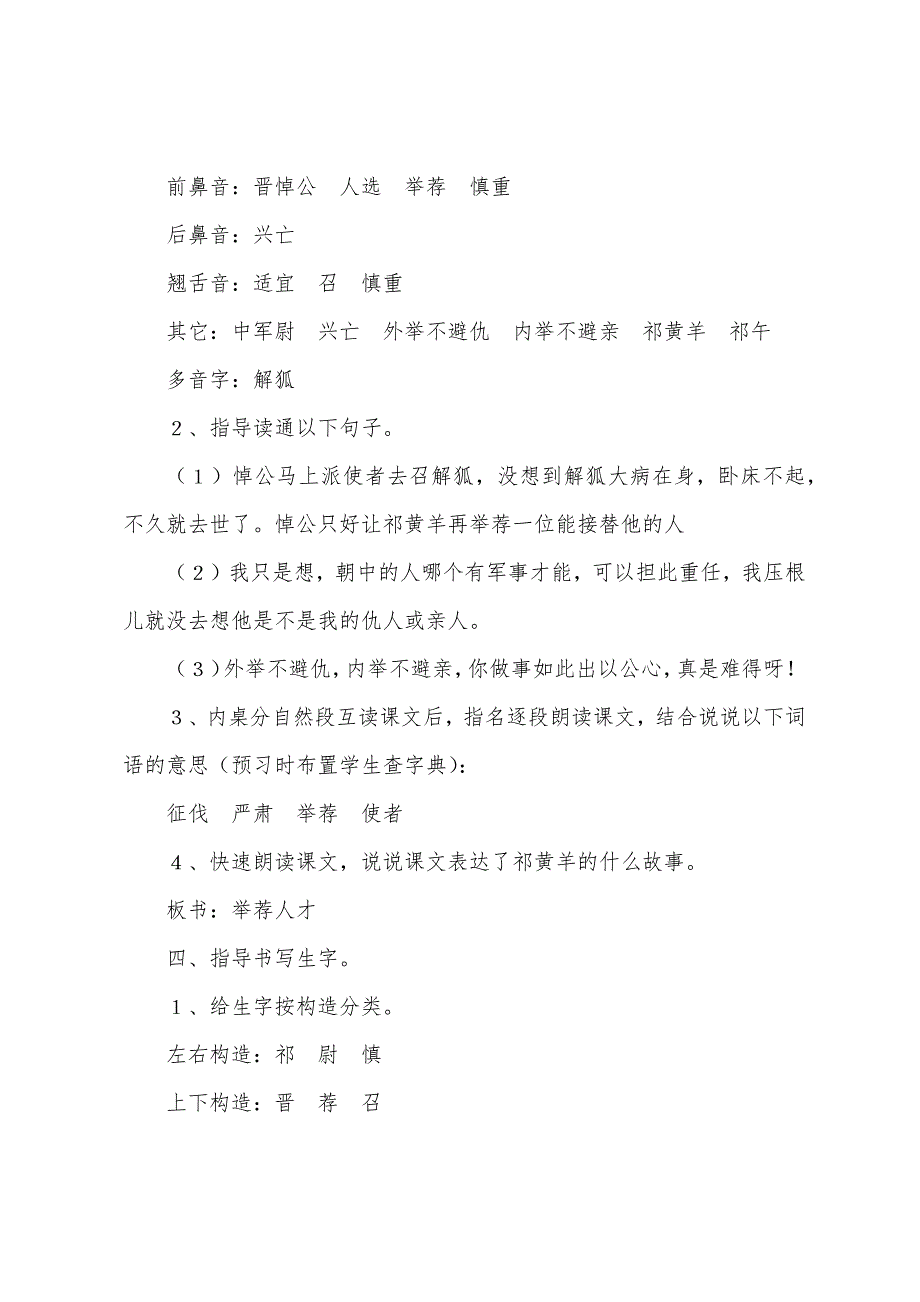 前鼻音：晋悼公　人选　举荐　慎重
后鼻音：兴亡
翘舌音：适宜　召　慎重
其它：中军尉　兴亡　外举不避仇　内举不避亲　祁黄羊　祁午
多音字：解狐
２、指导读通以下句子。
（１）悼公马上派使者去召解狐，没想到解狐大病在身，卧床不起，
不久就去世了。悼公只好让祁黄羊再举荐一位能接替他的人
（２）我只是想，朝中的人哪个有军事才能，可以担此重任，我压根
儿就没去想他是不是我的仇人或亲人。
（３）外举不避仇，内举不避亲，你做事如此出以公心，真是难得呀！
３、内桌分自然段互读课文后，指名逐段朗读课文，结合说说以下词
语的意思（预习时布置学生查字典）：
征伐　严肃　举荐　使者
４、快速朗读课文，说说课文表达了祁黄羊的什么故事。
板书：举荐人才
四、指导书写生字。
１、给生字按构造分类。
左右构造：祁　尉　慎
上下构造：晋　荐　召